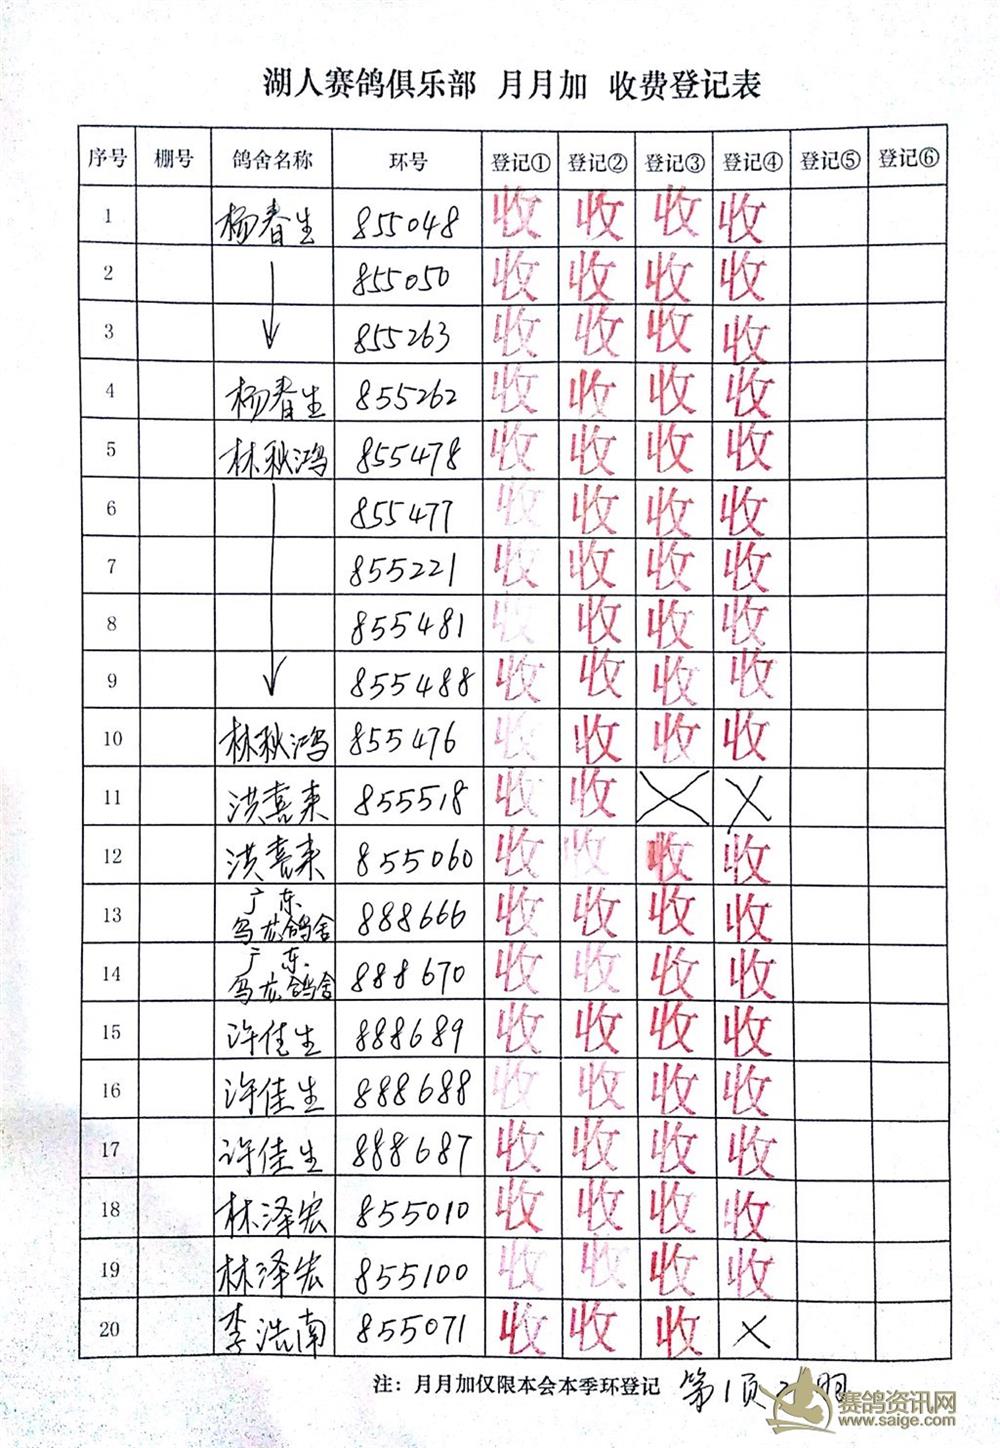 湖人赛鸽俱乐部 月月加 收费登记表
序号 棚号 鸽舍名称 环号 登记① 登记② 登记③ 登记④ 登记⑤ 登记⑥
1 杨春生 855048 收 收 收 收
2 855050 收 收 收 收
3 855263 收 收 收 收
4 杨春生 855262 收 收 收 收
5 林秋鸿 855478 收 收 收 收
6 855477 收 收 收 收
7 855221 收 收 收 收
8 855481 收 收 收 收
9 855488 收 收 收 收
10 林秋鸿 855476 收 收 收 收
11 洪喜来 855518 收 收 × ×
12 洪喜来 855060 收 收 收 收
13 广东乌龙鸽舍 888666 收 收 收 收
14 广东乌龙鸽舍 888670 收 收 收 收
15 许佳生 888689 收 收 收 收
16 许佳生 888688 收 收 收 收
17 许佳生 888687 收 收 收 收
18 林泽宏 855010 收 收 收 收
19 林泽宏 855100 收 收 收 收
20 李浩南 855071 收 收 收 ×
注：月月加仅限本会本季环登记 第1页 羽
赛鸽资讯网
www.saige.com